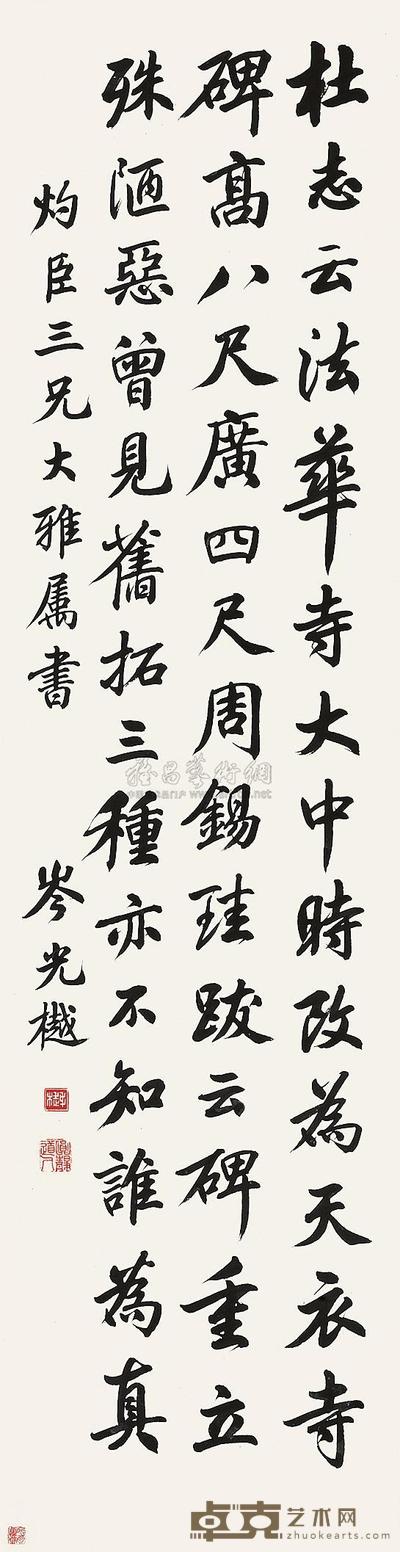 杜志云法華寺大中時改為天衣寺
碑高八尺廣四尺周錫珪跋云碑重立
殊陋惡曾見舊拓三種亦不知誰為真
灼臣三兄大雅属書
岑光樾
卓克艺术网
zhuokearts.com